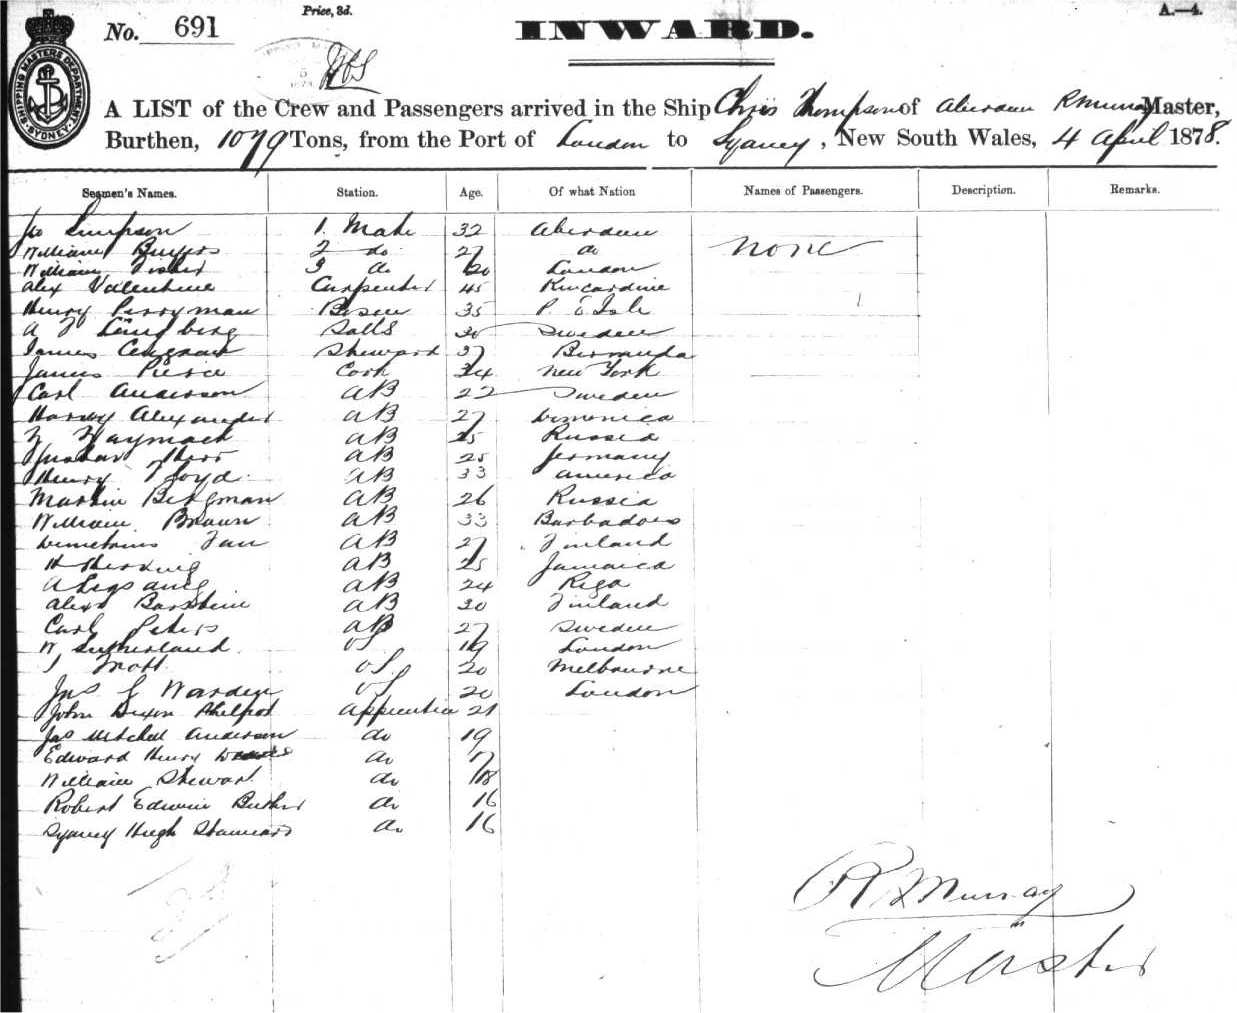 Price, 3d.
A.—4.
No. 691
INWARD.
SHIPPING MASTERS DEPARTMENT SYDNEY
A LIST of the Crew and Passengers arrived in the Ship Chris Thompson of Aberdeen R Murray Master,
Burthen, 1079 Tons, from the Port of London to Sydney, New South Wales, 4 April 1878.
Seamen's Names. Station. Age. Of what Nation Names of Passengers. Description. Remarks.
Simpson 1. Mate 32 Aberdeen
William 2 do 27 do none
William 3 do 20 London
Alex Valentine Carpenter 45 Kincardine
Henry Perryman Bosun 35 P. E Isle
A Sails 30 Sweden
James Steward 37 Bermuda
James Pierce Cook 34 New York
Carl Anderson AB 22 Sweden
Harvey Alexander AB 27
AB 25 Russia
AB 25 Germany
Henry Floyd AB 33 America
Martin Bergman AB 26 Russia
William Brown AB 33 Barbadoes
AB 27 Finland
H AB 25 Jamaica
A AB 24 Riga
Alex AB 30 Finland
Carl Peters AB 27 Sweden
W Sutherland OS 19 London
J Mott OS 20 Melbourne
Jas G Warden OS 20 London
John Dixon Philpot Apprentice 21
Jas Mitchell Anderson do 19
Edward Henry do 17
William Stewart do 18
Robert Edwin do 16
Sydney Hugh do 16
R Murray
Master